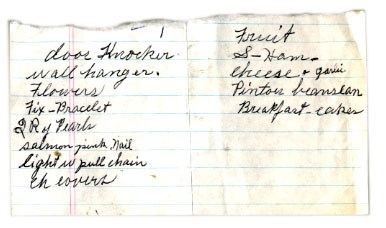 door Knocker.
wall hanger.
Flowers
Fix-Bracelet
2 R of Pearls
salmon pink Nail
light w pull chain
ch covers
Fruit
S-Ham-
Cheese + garlic
Pintou beans can
Breakfast-cakes